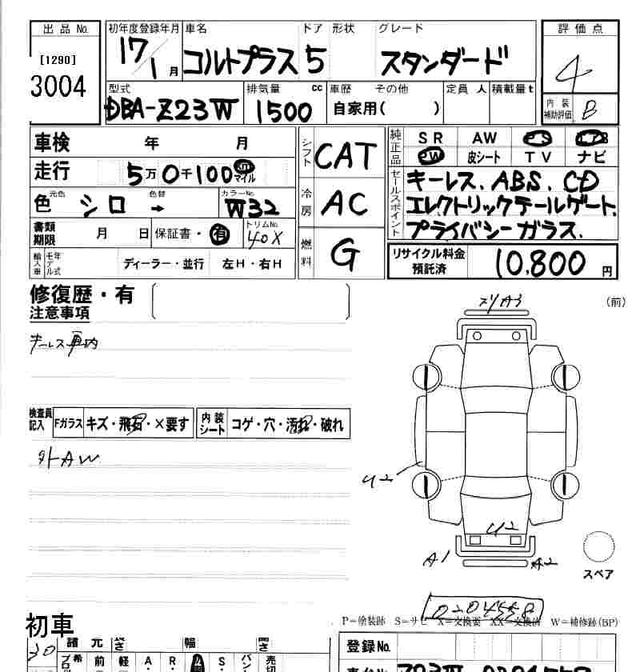 出品No. 初年度登録年月 車名 ドア 形状 グレード 評価点
[1290] 3004 17/1月 コルトプラス 5 スタンダード 4
型式 排気量 cc 車歴 その他 定員 人 積載量t 内装補助評価 B
DBA-Z23W 1500 自家用( )
車検 年 月 シフト CAT 純正品 SR AW PS
走行 5万0千100 マイル PW 皮シート TV ナビ
色 元色 シロ 色替 → カラーNo. W32 冷房 AC セールスポイント キーレス.ABS.CD
エレクトリックテールゲート.
プライバシーガラス.
書類期限 月 日 保証書・有 トリムNo. 40X 燃料 G
輸入車 モデル年式 ディーラー・並行 左H・右H リサイクル料金預託済 10,800 円
修復歴・有
注意事項
(前)
キーレス車内
A3
検査員記入 Fガラス キズ・飛石・×要す 内装シート コゲ・穴・汚れ・破れ
外AW
U2
U2
A1 A2
スペア
0204558
初車 P=塗装跡 S=サビ X=交換要 XX=交換済 W=補修跡(BP)
諸元 幅
登録No.